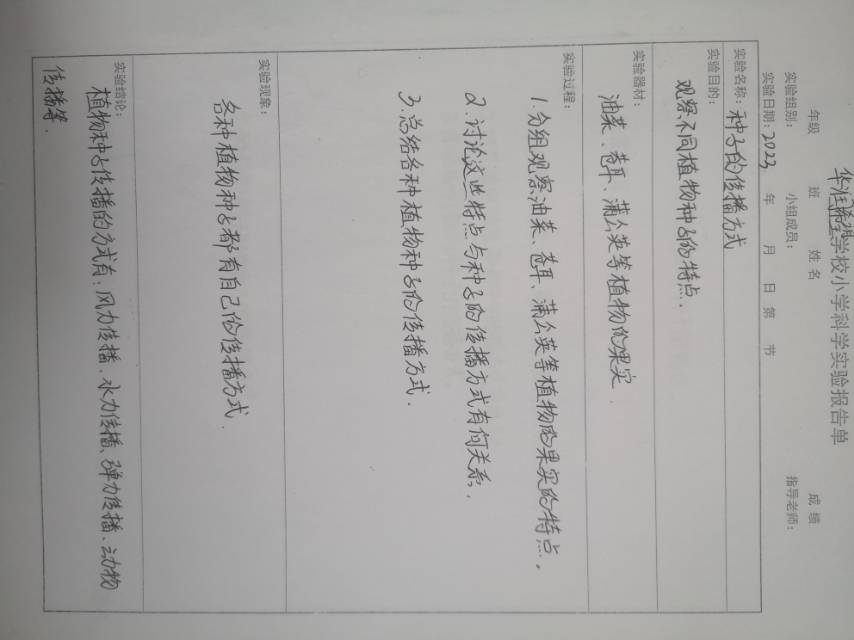 华润希望学校小学科学实验报告单
年级 班 姓名 成绩
实验组别: 小组成员: 指导老师:
实验日期: 2023 年 月 日 第 节
实验名称: 种子的传播方式
实验目的:
观察不同植物种子的特点.
实验器材:
油菜、苍耳、蒲公英等植物的果实.
实验过程:
1.分组观察油菜、苍耳、蒲公英等植物的果实的特点.
2.讨论这些特点与种子的传播方式有何关系.
3.总结各种植物种子的传播方式.
实验现象:
各种植物种子都有自己的传播方式.
实验结论:
植物种子传播的方式有:风力传播、水力传播、弹力传播、动物
传播等.